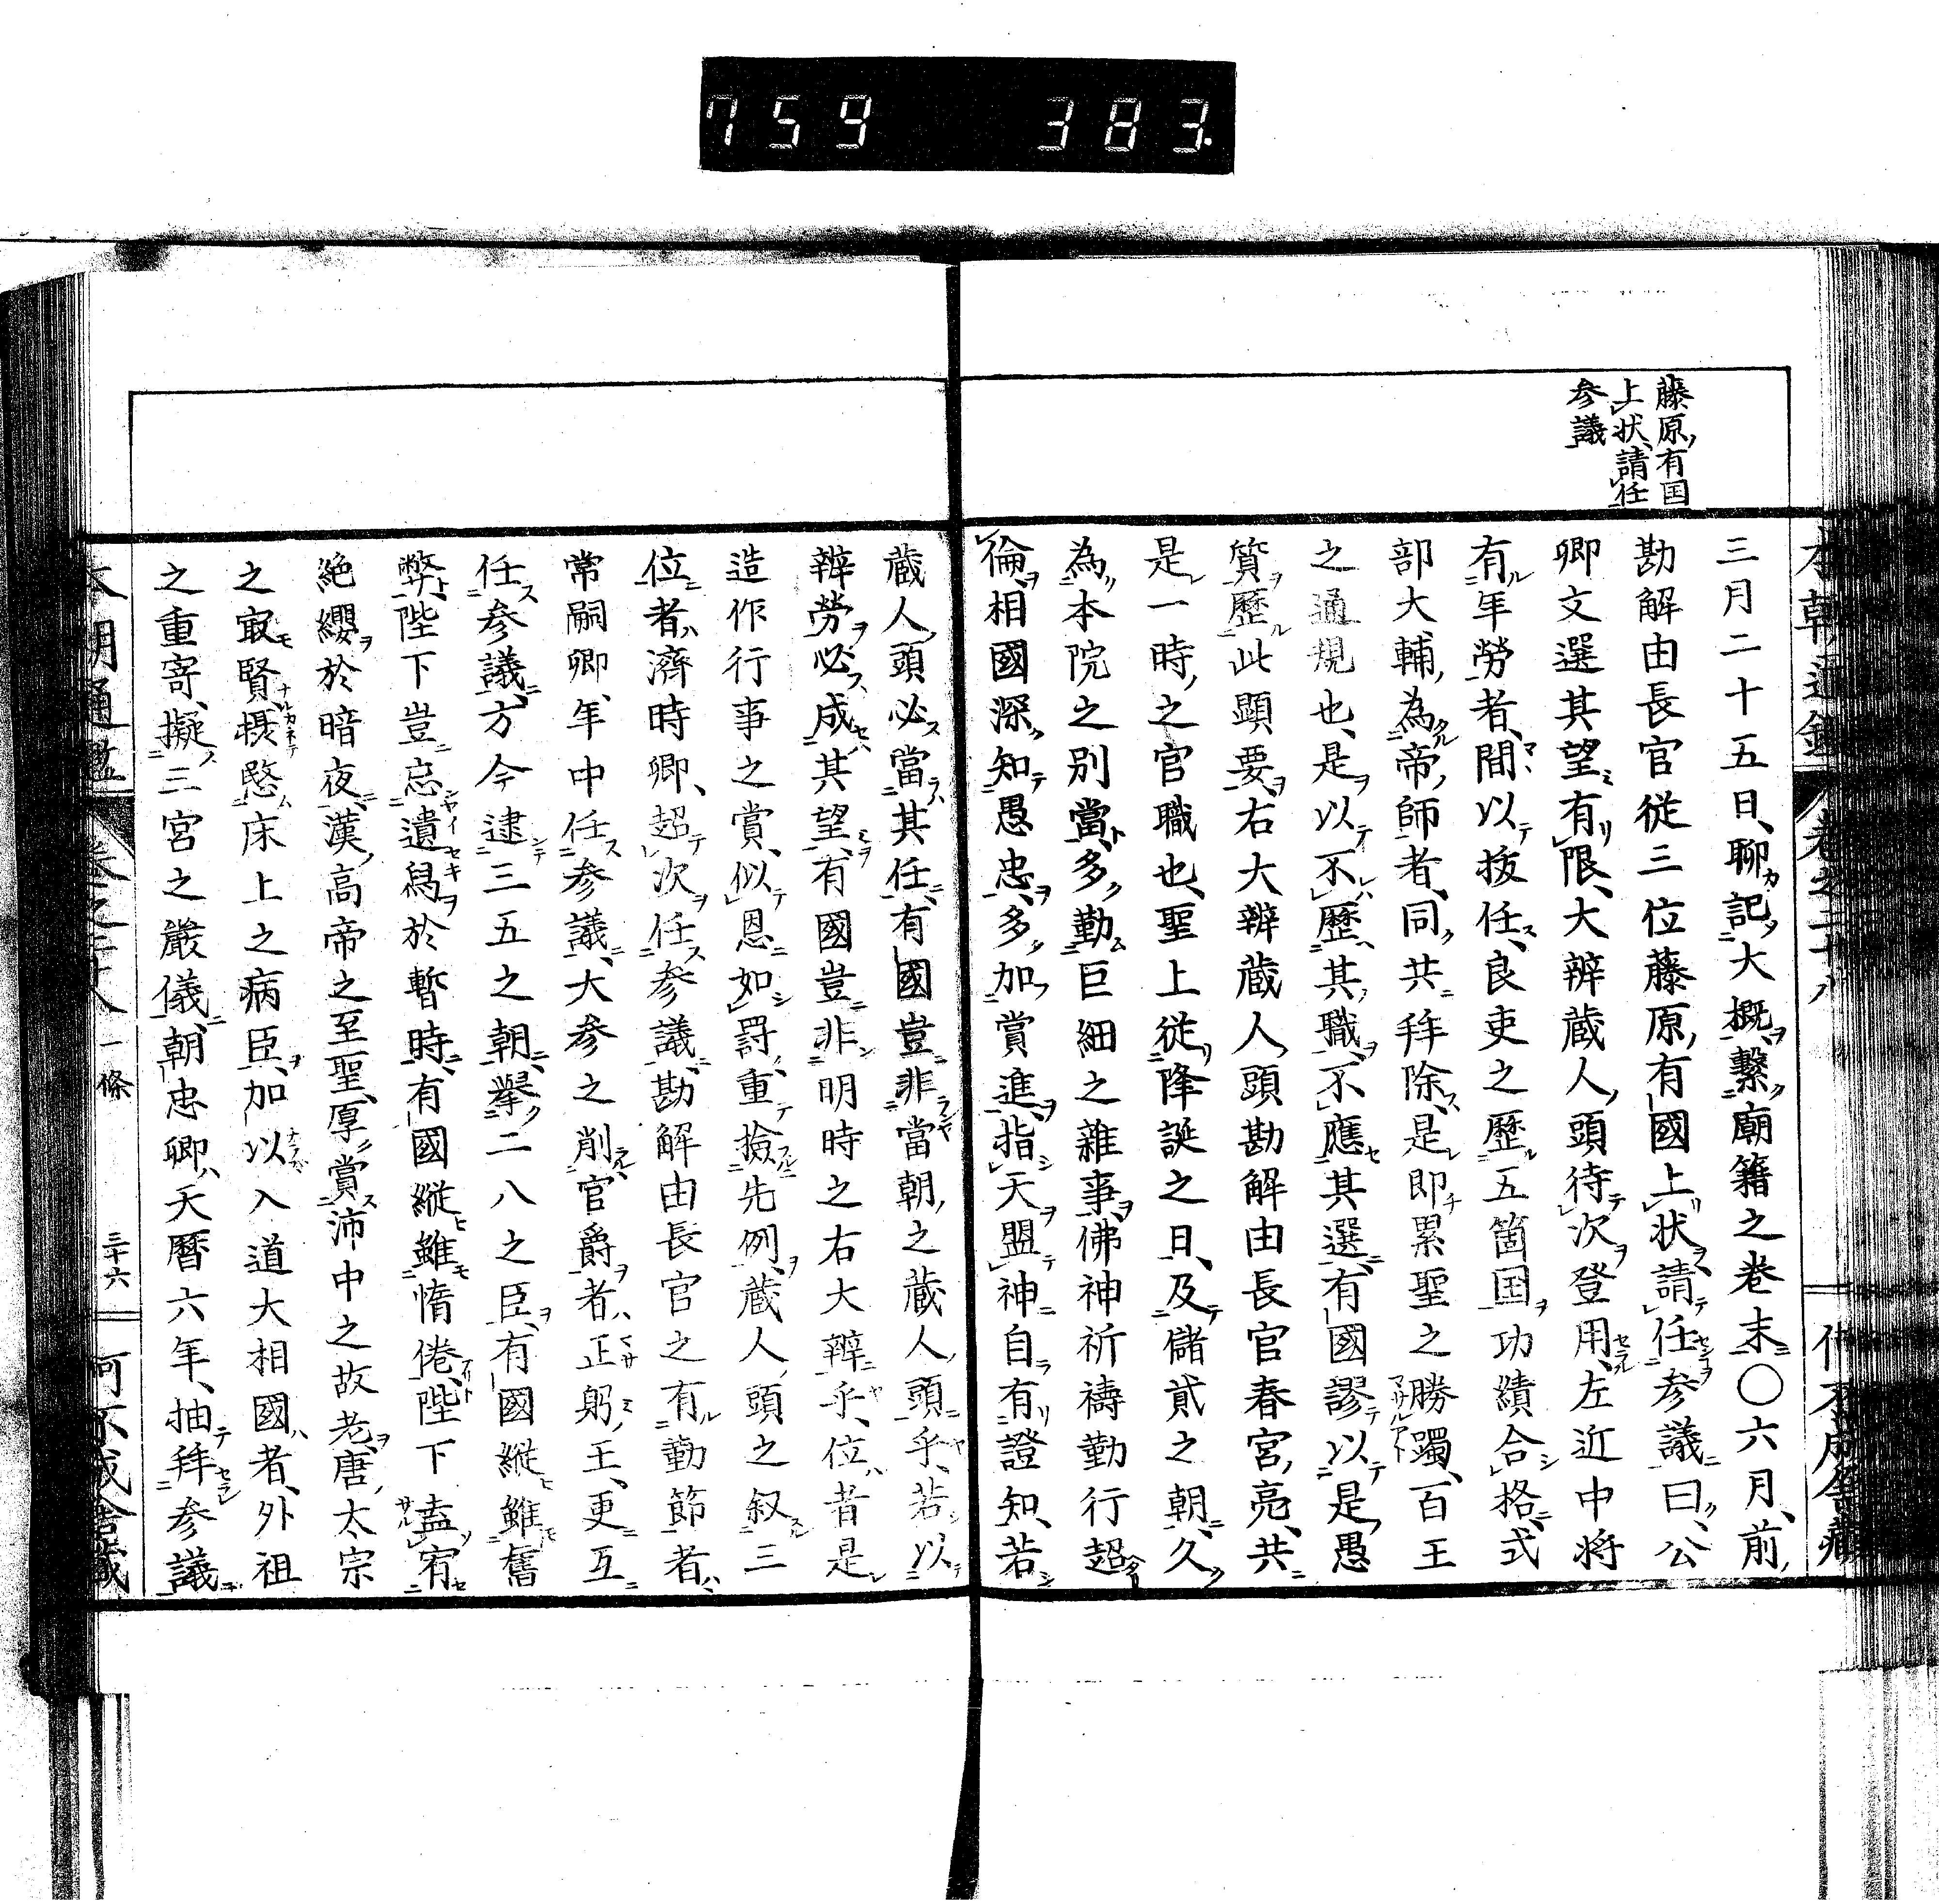 759 383.
藤原有国
上状請任
参議
三月二十五日聊記大概繋廟籍之巻末〇六月前
勘解由長官従三位藤原有國上状請任参議曰公
卿文選其望有限大辨蔵人頭待次登用左近中将
有年勞者間以抜任良吏之歴五箇国功績合格式
部大輔為帝師者同共拜除是即累聖之勝躅百王
之通規也是以不歴其職不應其選有國謬以是愚
質歴此顕要右大辨蔵人頭勘解由長官春宮亮共
是一時之官職也聖上従降誕之日及儲貳之朝久
為本院之別當多勤巨細之雜事佛神祈禱勤行超
倫相國深知愚忠多加賞進指天盟神自有證知若
蔵人頭必當其任有國豈非當朝之蔵人頭乎若以
辨勞必成其望有國豈非明時之右大辨乎位者是
造作行事之賞似恩如罸重撿先例蔵人頭之叙三
位者濟時卿超次任参議勘解由長官之有勤節者
常嗣卿年中任参議大参之削官爵者正躬王更互
任参議方今逮三五之朝擧二八之臣有國縦雖舊
弊陛下豈忘遺舄於暫時有國縦雖惰倦陛下盍宥
絶纓於暗夜漢高帝之至聖厚賞沛中之故老唐太宗
之㝡賢概愍床上之病臣加以入道大相國者外祖
之重寄擬三宮之嚴儀朝忠卿天曆六年抽拜参議
本朝通鑑 巻之二十八 一條 三十六